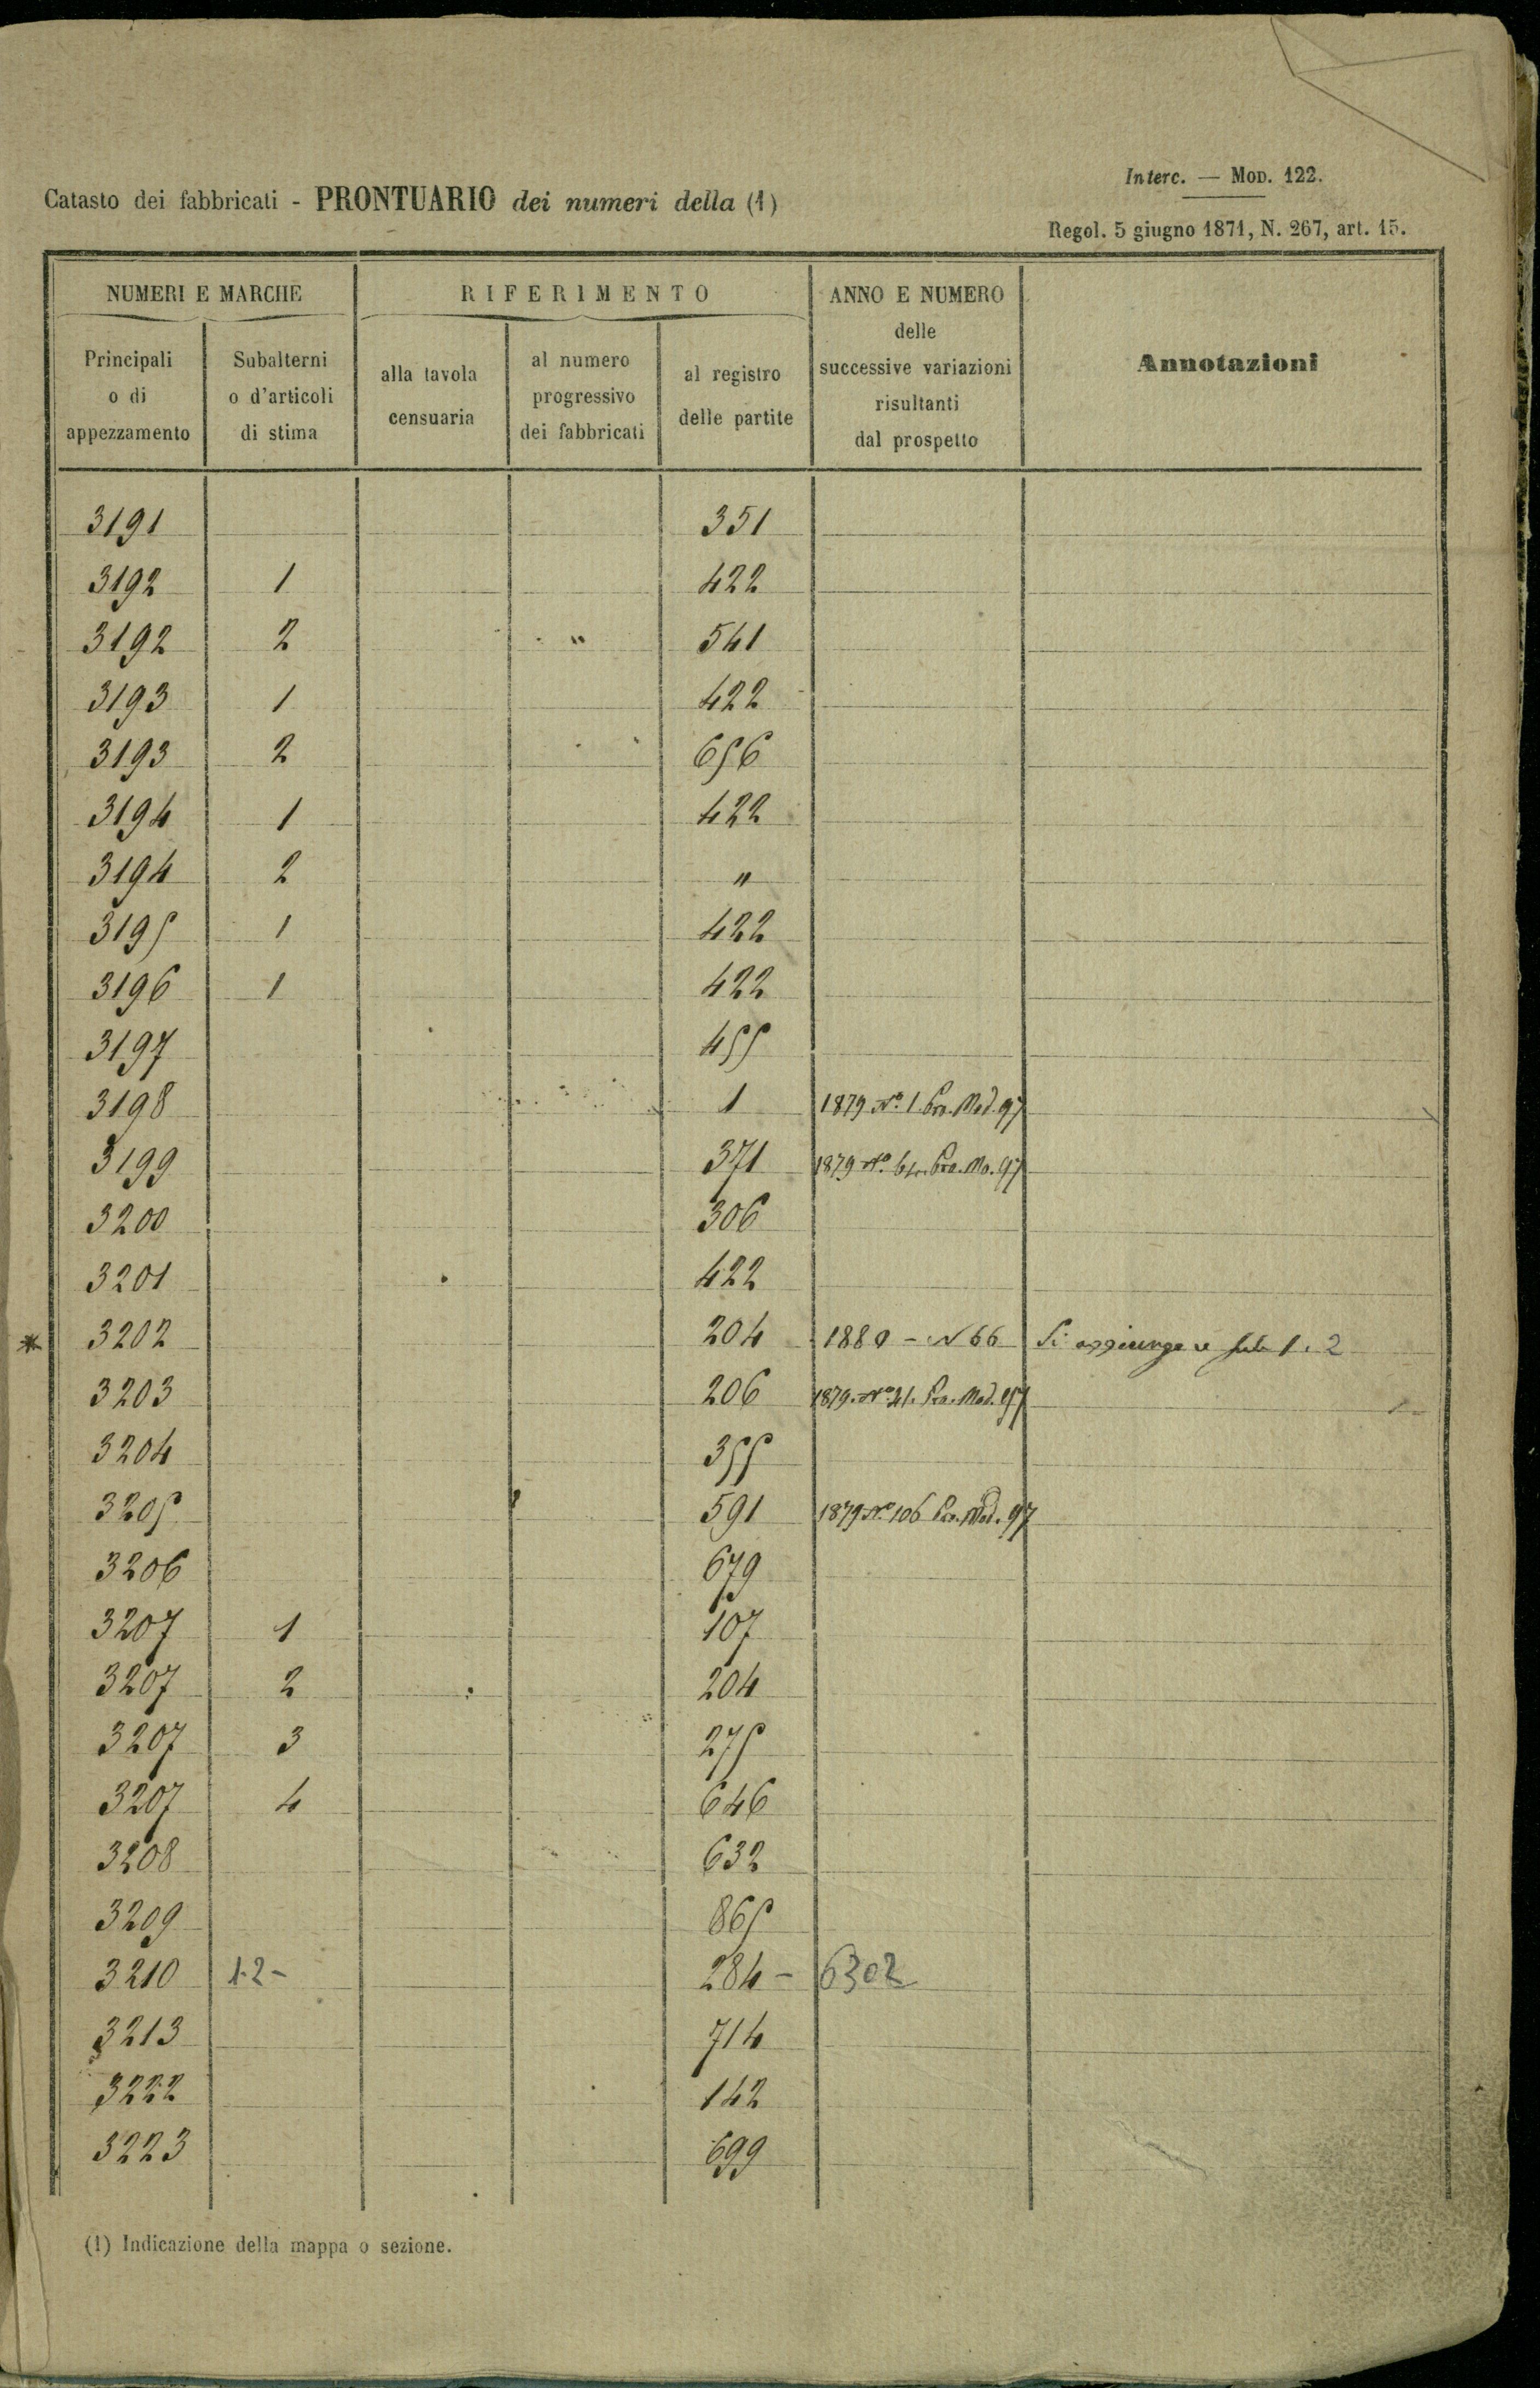 Interc. — Mod. 122.
Catasto dei fabbricati - PRONTUARIO dei numeri della (1)
Regol. 5 giugno 1871, N. 267, art. 15.
NUMERI E MARCHE
RIFERIMENTO
ANNO E NUMERO
delle
successive variazioni
risultanti
dal prospetto
Annotazioni
Principali
o di
appezzamento
Subalterni
o d'articoli
di stima
alla tavola
censuaria
al numero
progressivo
dei fabbricati
al registro
delle partite
3191 351
3192 1 422
3192 2 " 541
3193 1 422
3193 2 656
3194 1 422
3194 2 "
3195 1 422
3196 1 422
3197 455
3198 1 1879 No. 1. Pro. Mod. 97
3199 371 1879 No. Pro. Mo. 97
3200 306
3201 422
* 3202 204 1880 - N 66 Si aggiunge 1. 2
3203 206 1879. No 21. Pro. Mod. 97
3204 355
3205 591 1879 No. 106 Pro. Mod. 97
3206 679
3207 1 107
3207 2 204
3207 3 275
3207 4 646
3208 632
3209 865
3210 1.2- 284 - 6302
3213 714
3222 142
3223 699
(1) Indicazione della mappa o sezione.